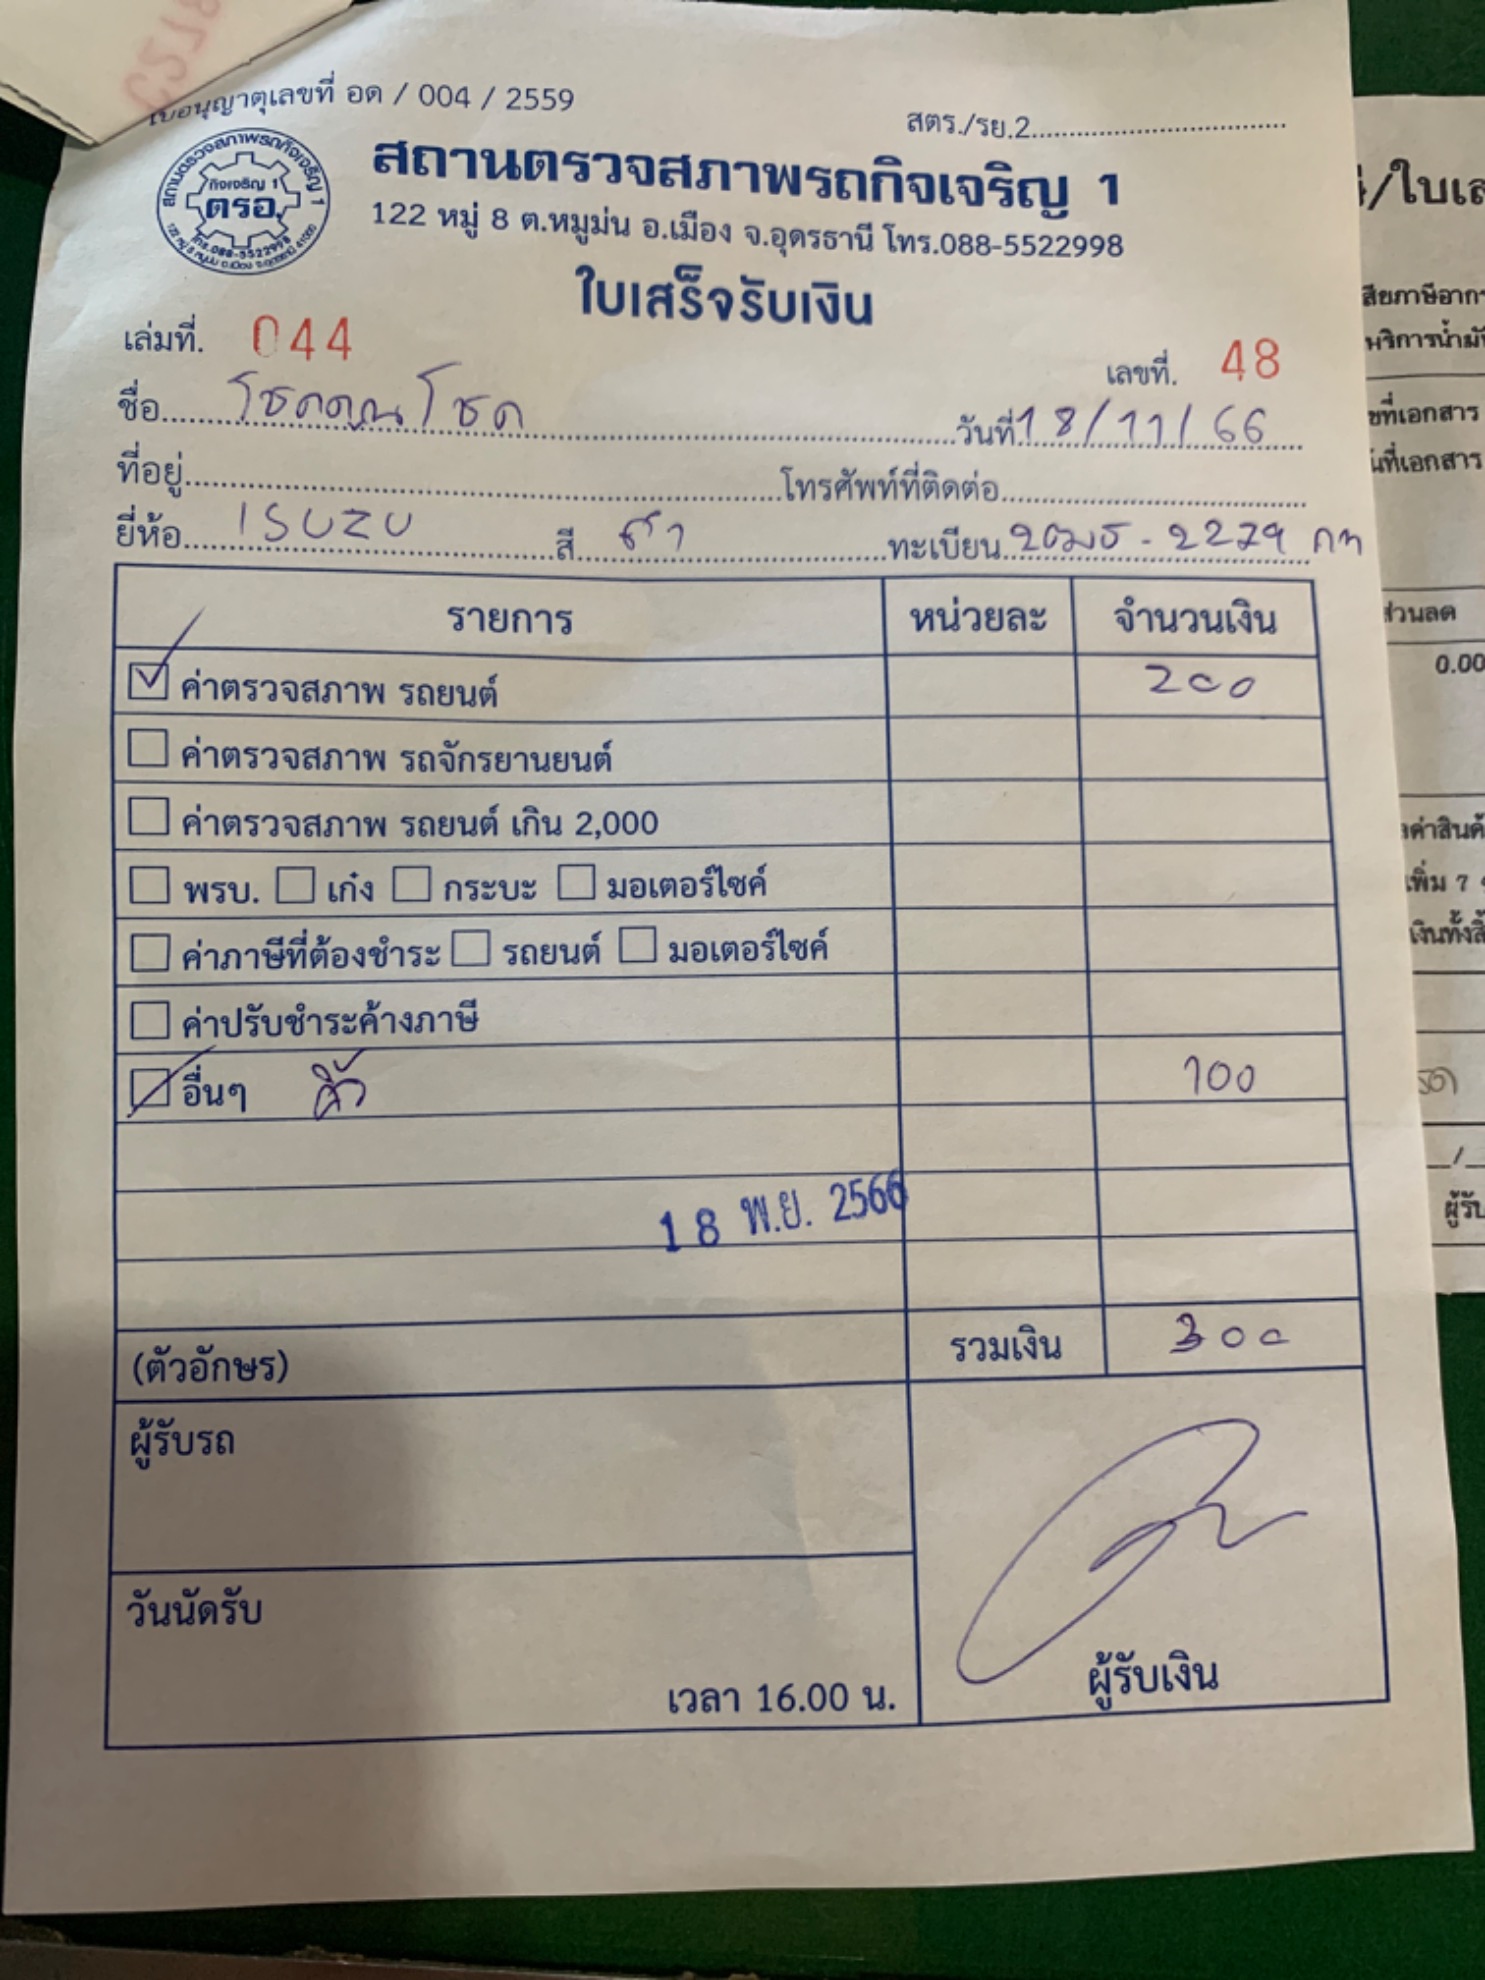 ใบอนุญาตเลขที่ อด / 004 / 2559
สตร./รย.2
สถานตรวจสภาพรถกิจเจริญ 1
122 หมู่ 8 ต.หมูม่น อ.เมือง จ.อุดรธานี โทร.088-5522998
สถานตรวจสภาพรถกิจเจริญ 1
กิจเจริญ 1
ตรอ.
โทร.088-5522998
ใบเสร็จรับเงิน
เล่มที่. 044
เลขที่. 48
ชื่อ โชคคูณโชค วันที่ 18/11/66
ที่อยู่ โทรศัพท์ที่ติดต่อ
ยี่ห้อ ISUZU สี ดำ ทะเบียน 2279 กท
รายการ หน่วยละ จำนวนเงิน
ค่าตรวจสภาพ รถยนต์ 200
ค่าตรวจสภาพ รถจักรยานยนต์
ค่าตรวจสภาพ รถยนต์ เกิน 2,000
พรบ. เก๋ง กระบะ มอเตอร์ไซค์
ค่าภาษีที่ต้องชำระ รถยนต์ มอเตอร์ไซค์
ค่าปรับชำระค้างภาษี
อื่นๆ คิ้ว 100
18 พ.ย. 2566
(ตัวอักษร) รวมเงิน 300
ผู้รับรถ
วันนัดรับ
เวลา 16.00 น.
ผู้รับเงิน
/ใบเส
สียภาษีอากร
ที่เอกสาร
ที่เอกสาร
ส่วนลด
0.00
ค่าสินค้
เพิ่ม 7
เงินทั้งสิ้
ผู้รับ